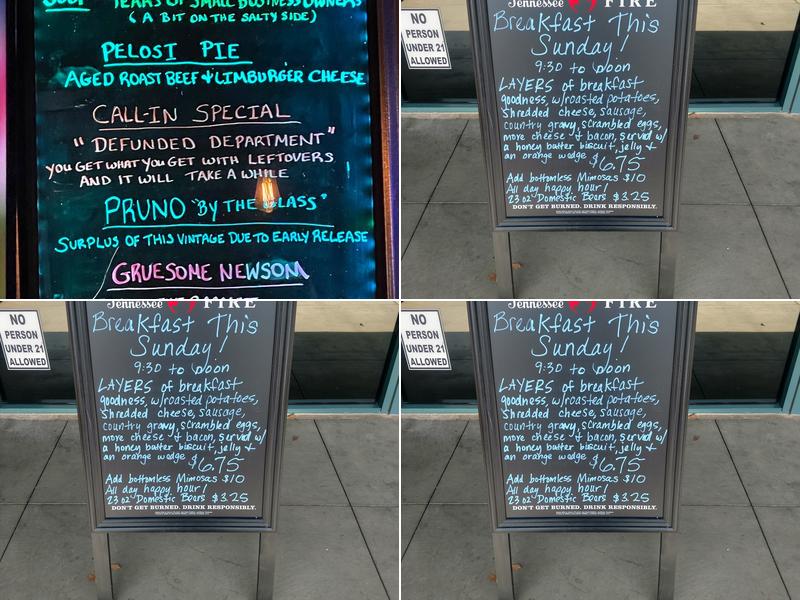 SOUP YEARS OF SMALL BUSINESS OWNERS
( A BIT ON THE SALTY SIDE)
PELOSI PIE
AGED ROAST BEEF + LIMBURGER CHEESE
CALL-IN SPECIAL
"DEFUNDED DEPARTMENT"
YOU GET WHAT YOU GET WITH LEFTOVERS
AND IT WILL TAKE A WHILE
PRUNO "BY THE GLASS"
SURPLUS OF THIS VINTAGE DUE TO EARLY RELEASE
GRUESOME NEWSOM
NO
PERSON
UNDER 21
ALLOWED
Tennessee FIRE
Breakfast This
Sunday!
9:30 to noon
LAYERS of breakfast
goodness, w/roasted potatoes,
shredded cheese, sausage,
country gravy, scrambled eggs,
more cheese + bacon, served w/
a honey butter biscuit, jelly +
an orange wedge $6.75
Add bottomless Mimosas $10
All day happy hour!
23 oz Domestic Beers $3.25
DON'T GET BURNED. DRINK RESPONSIBLY.
NO
PERSON
UNDER 21
ALLOWED
Tennessee FIRE
Breakfast This
Sunday!
9:30 to noon
LAYERS of breakfast
goodness, w/roasted potatoes,
shredded cheese, sausage,
country gravy, scrambled eggs,
more cheese + bacon, served w/
a honey butter biscuit, jelly +
an orange wedge $6.75
Add bottomless Mimosas $10
All day happy hour!
23 oz Domestic Beers $3.25
DON'T GET BURNED. DRINK RESPONSIBLY.
NO
PERSON
UNDER 21
ALLOWED
Tennessee FIRE
Breakfast This
Sunday!
9:30 to noon
LAYERS of breakfast
goodness, w/roasted potatoes,
shredded cheese, sausage,
country gravy, scrambled eggs,
more cheese + bacon, served w/
a honey butter biscuit, jelly +
an orange wedge $6.75
Add bottomless Mimosas $10
All day happy hour!
23 oz Domestic Beers $3.25
DON'T GET BURNED. DRINK RESPONSIBLY.